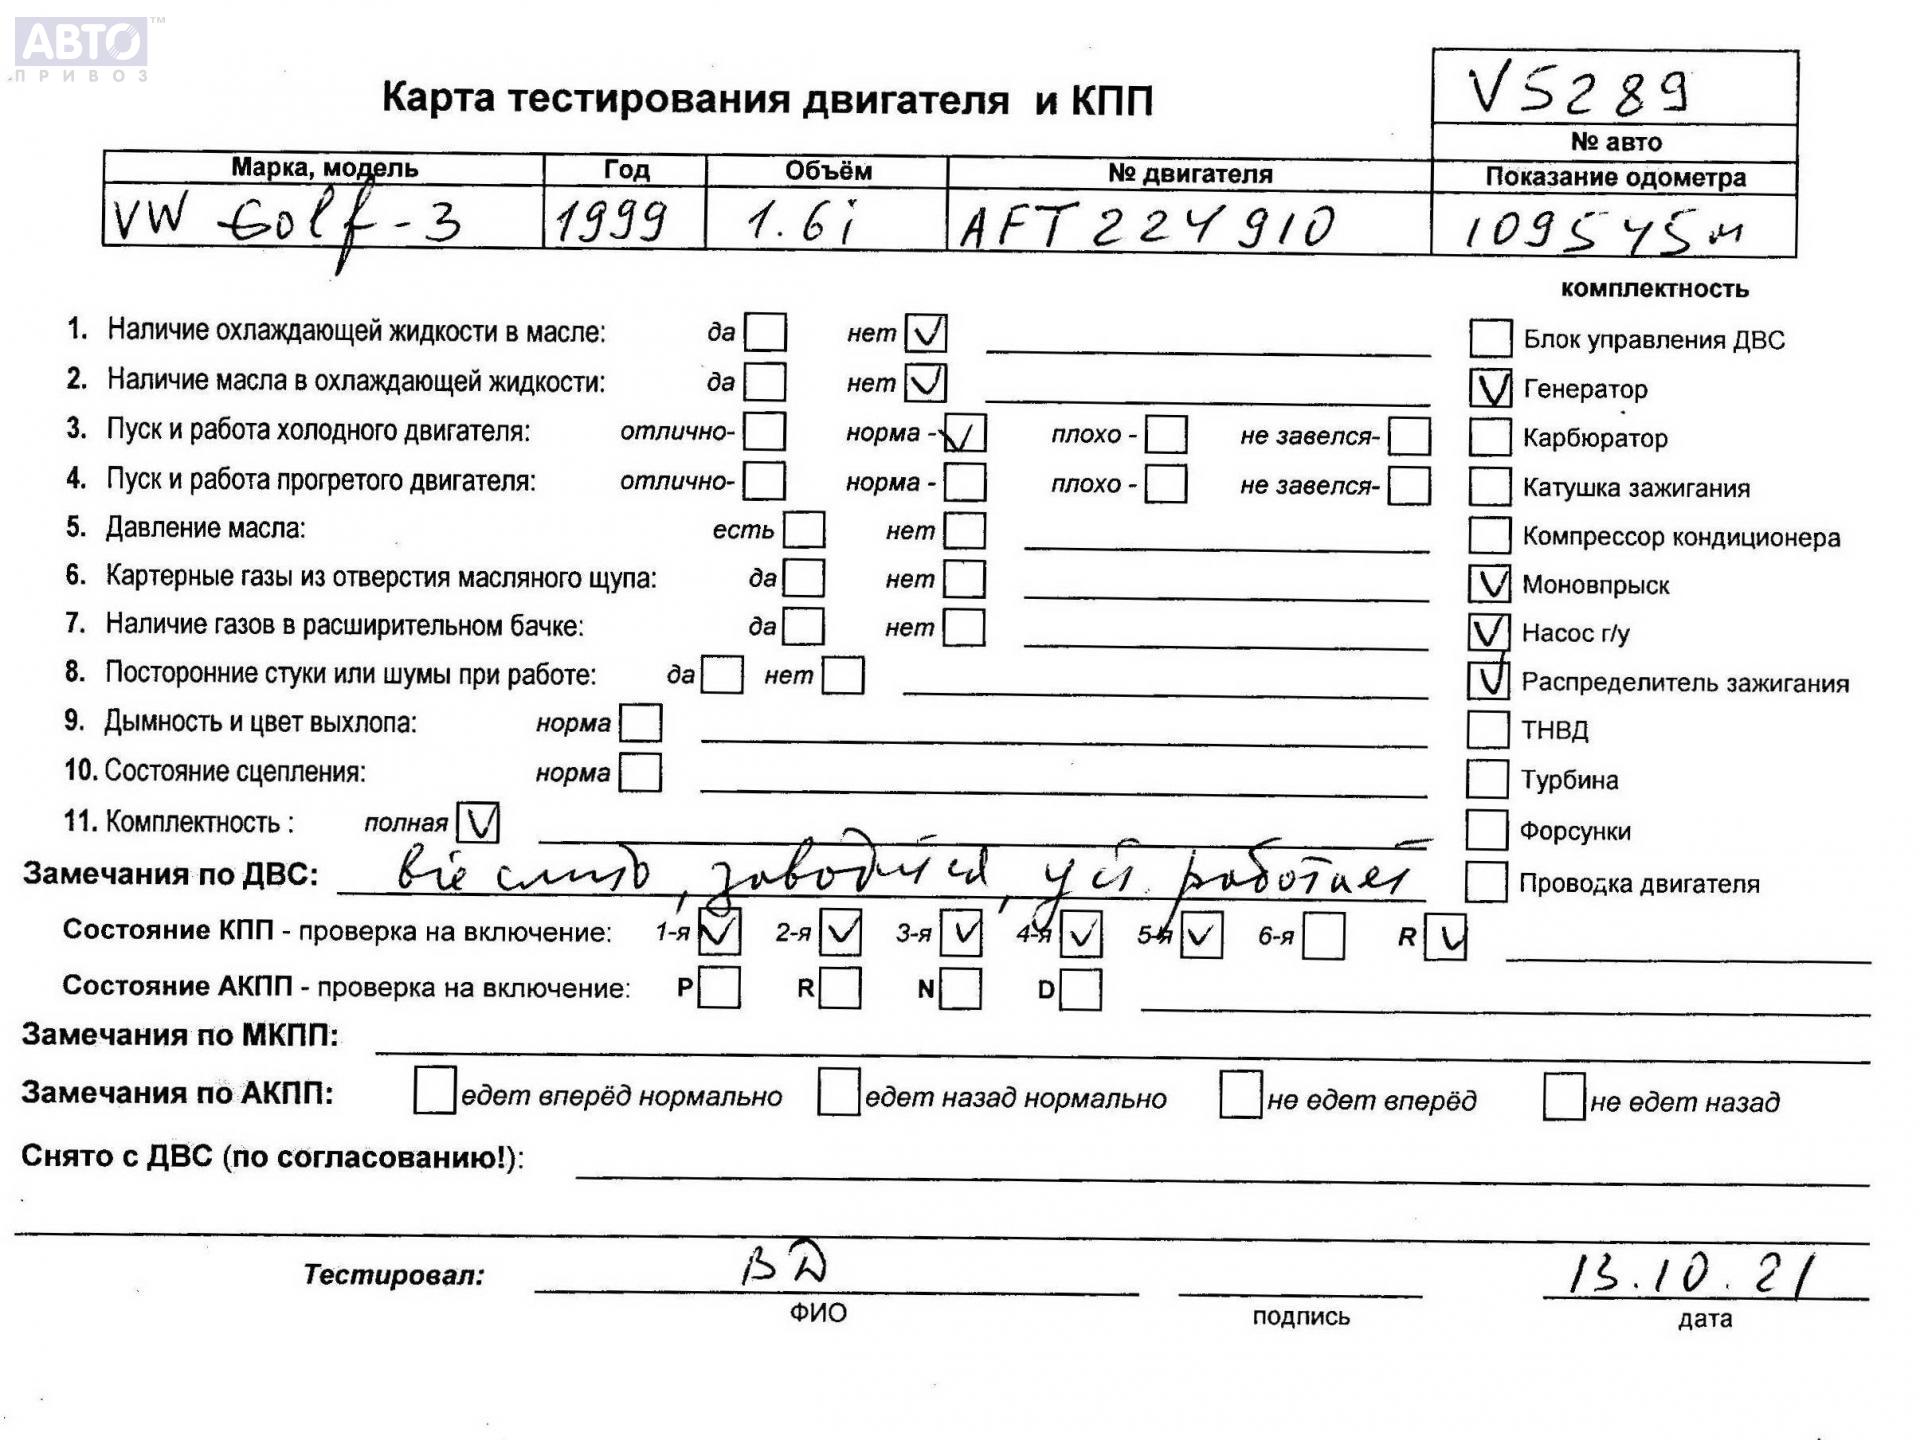 АВТО™
ПРИВОЗ
V5289
Карта тестирования двигателя и КПП
№ авто
Марка, модель Год Объём № двигателя Показание одометра
VW Golf-3 1999 1.6i AFT224910 109545м
комплектность
1. Наличие охлаждающей жидкости в масле: да нет V Блок управления ДВС
2. Наличие масла в охлаждающей жидкости: да нет V V Генератор
3. Пуск и работа холодного двигателя: отлично- норма - V плохо - не завелся- Карбюратор
4. Пуск и работа прогретого двигателя: отлично- норма - плохо - не завелся- Катушка зажигания
5. Давление масла: есть нет Компрессор кондиционера
6. Картерные газы из отверстия масляного щупа: да нет V Моновпрыск
7. Наличие газов в расширительном бачке: да нет V Насос г/у
8. Посторонние стуки или шумы при работе: да нет V Распределитель зажигания
9. Дымность и цвет выхлопа: норма ТНВД
10. Состояние сцепления: норма Турбина
11. Комплектность : полная V Форсунки
Замечания по ДВС: всё слито, заводится, уст. работает Проводка двигателя
Состояние КПП - проверка на включение: 1-я V 2-я V 3-я V 4-я V 5-я V 6-я R V
Состояние АКПП - проверка на включение: P R N D
Замечания по МКПП:
Замечания по АКПП: едет вперёд нормально едет назад нормально не едет вперёд не едет назад
Снято с ДВС (по согласованию!):
Тестировал: ВД 13.10.21
ФИО подпись дата